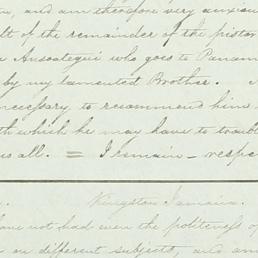 and am therefore very anxious
of the remainder of the pistol
Ansoategui who goes to Panam
by my lamented Brother.
necessary, to recommend him
which he may have to troubl
us all. = I remain - respec
Kingston Jamaica.
have not had even the politeness of
on different subjects, and am